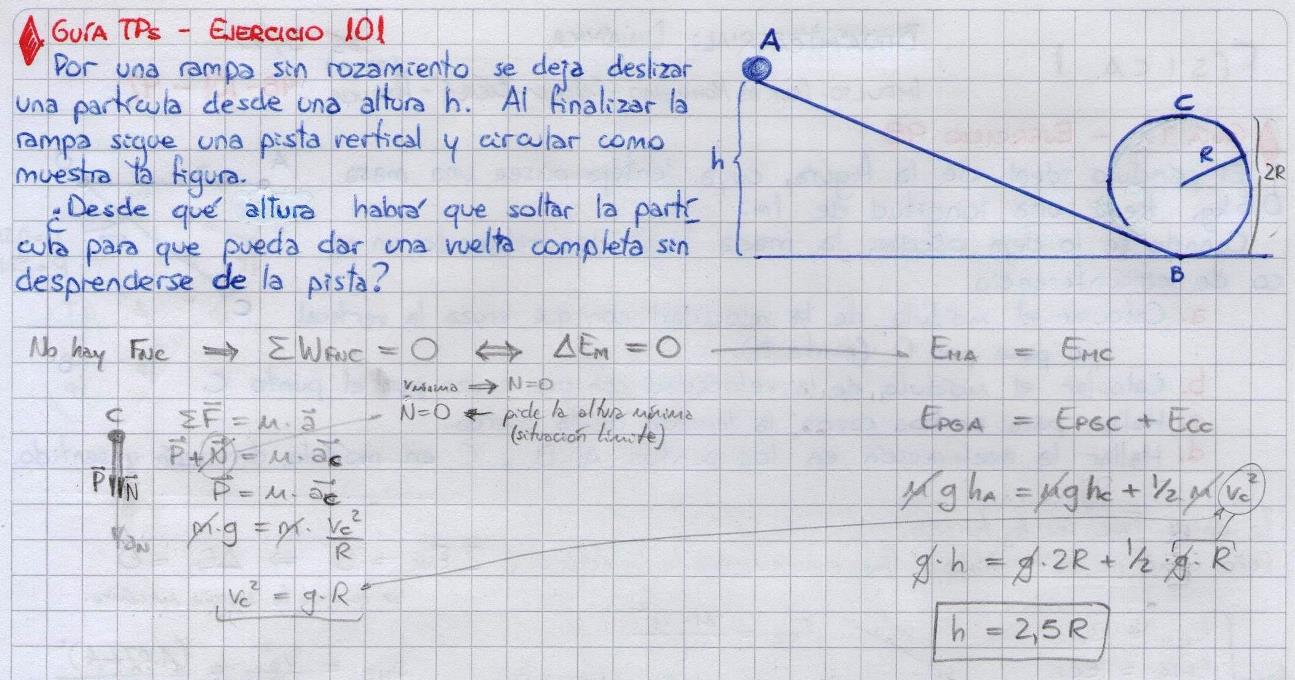 GUÍA TPs - EJERCICIO 101
Por una rampa sin rozamiento se deja deslizar
una partícula desde una altura h. Al finalizar la
rampa sigue una pista vertical y circular como
muestra la figura.
¿Desde qué altura habrá que soltar la partí-
cula para que pueda dar una vuelta completa sin
desprenderse de la pista?
A
h
C
R
2R
B
No hay FNC ⇒ ΣWFNC = 0 ⇔ ΔEM = 0 → EMA = EMC
vmínima ⇒ N=0
N=0 ← pide la altura mínima
(situación límite)
C
P N
ΣF = m·a
P + N = m·ac
P = m·ac
m·g = m·vc²/R
vc² = g·R
EPGA = EPGC + ECC
m g hA = m g hC + 1/2 m vc²
g·h = g·2R + 1/2·g·R
h = 2,5 R